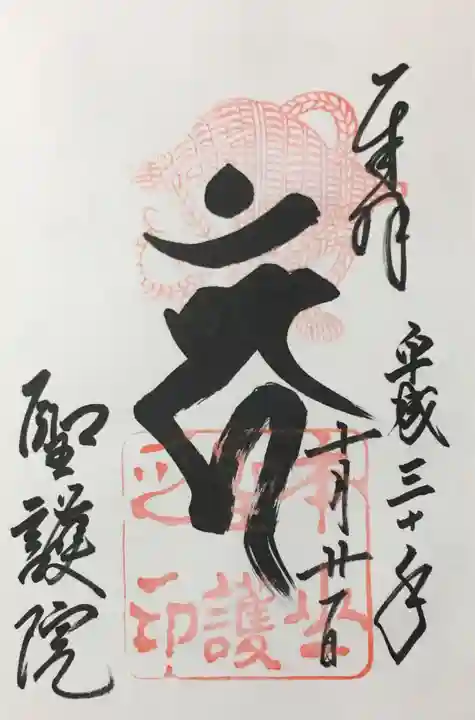 奉拝
平成三十年
十月廿一日
聖護院
護
之印